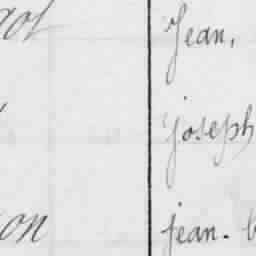 got Jean,
joseph
on jean. b